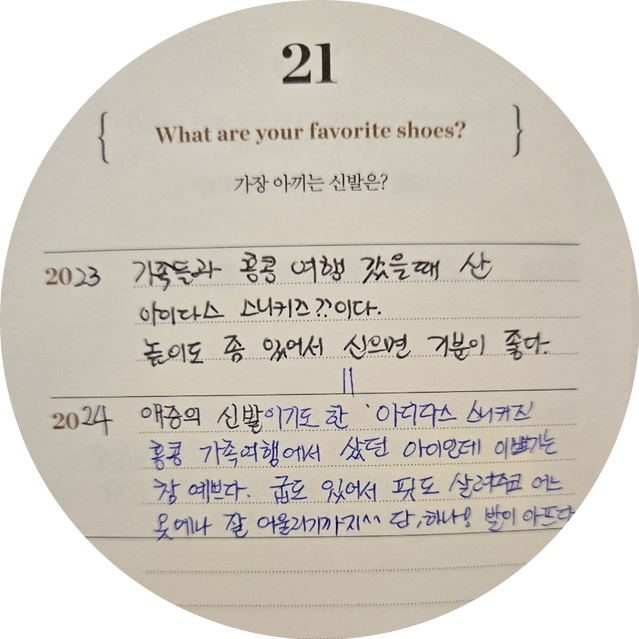 21
{ What are your favorite shoes? }
가장 아끼는 신발은?
2023 가족들과 홍콩 여행 갔을때 산
아이다스 스니커즈??이다.
높이도 좀 있어서 신으면 기분이 좋다.
||
2024 애증의 신발이기도 한 '아디다스 스니커즈'
홍콩 가족여행에서 샀던 아이인데 이쁘기는
참 예쁘다. 굽도 있어서 핏도 살려주고 어느
옷에나 잘 어울리기까지^^ 단, 하나! 발이 아프다